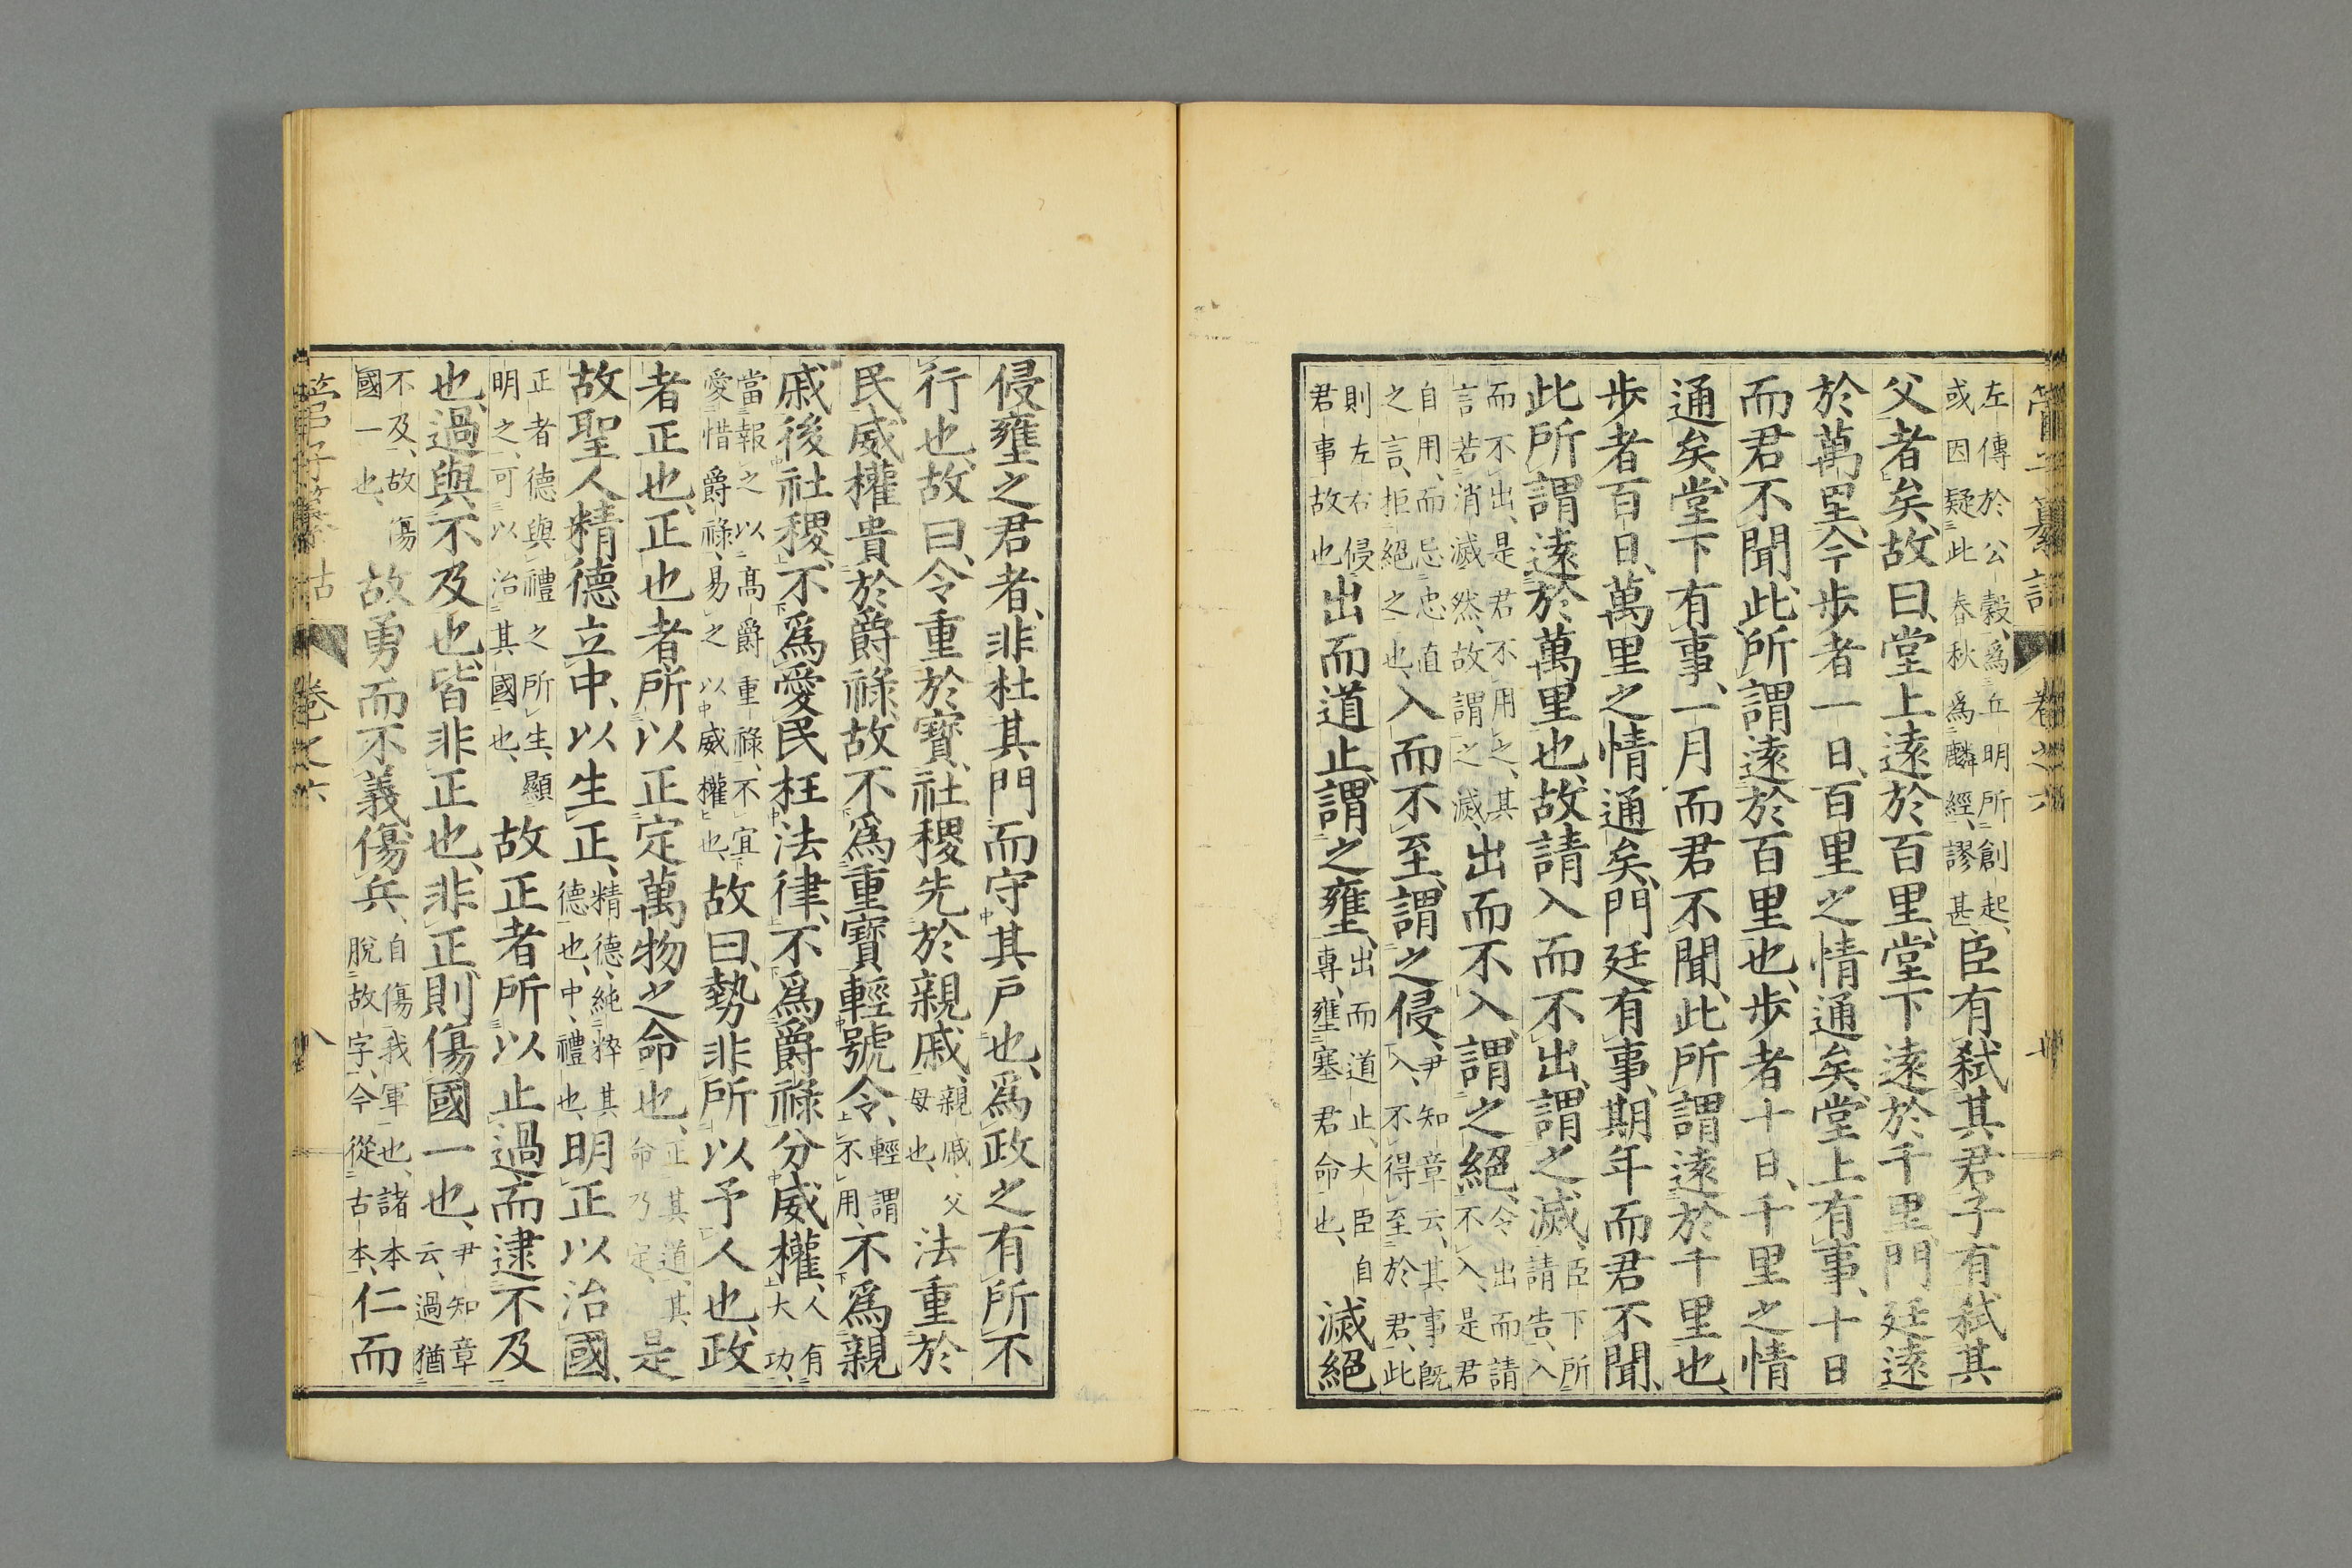 管子纂詁 卷之六
左傳於公穀、爲丘明所創起、
或因疑此春秋爲麟經、謬甚、臣有弑其君子有弑其
父者矣、故曰、堂上遠於百里、堂下遠於千里、門廷遠
於萬里、今步者一日、百里之情通矣、堂上有事、十日
而君不聞、此所謂遠於百里也、步者十日、千里之情
通矣、堂下有事、一月而君不聞、此所謂遠於千里也、
步者百日、萬里之情通矣、門廷有事、期年而君不聞、
此所謂遠於萬里也、故請入而不出、謂之滅、臣下所請告、入
而不出、是君不用之、其言若消滅然、故謂之滅、出而不入、謂之絕、令出而請不入、是君
自用、而忌忠直之言、拒絕之也、入而不至、謂之侵、尹知章云、其事既入、不得至於君、此
則左右侵君事故也、出而道止、謂之壅、出而道止、大臣自專、壅塞君命也、滅絕
侵壅之君者、非杜其門而守其戶也、爲政之有所不
行也、故曰、令重於寶、社稷先於親戚、親戚、父母也、法重於
民、威權貴於爵祿、故不爲重寶輕號令、輕謂不用、不爲親
戚後社稷、不爲愛民枉法律、不爲爵祿分威權、人有大功、
當報之以高爵重祿、不宜愛惜爵祿、易之以威權也、故曰、勢非所以予人也、政
者正也、正也者、所以正定萬物之命也、正其道、其命乃定、是
故聖人精德立中、以生正、精德、純粹其德也、中、禮也、明正以治國、
正者德與禮之所生、顯明之、可以治其國也、故正者所以止過而逮不及
也、過與不及也、皆非正也、非正則傷國一也、尹知章云、過猶
不及、故傷國一也、故勇而不義傷兵、自傷我軍也、諸本脫故字、今從古本、仁而
管子纂詁 卷之六 八